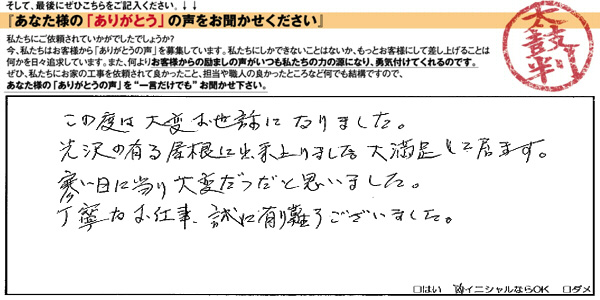 そして、最後にぜひこちらをご記入ください。↓↓
『あなた様の「ありがとう」の声をお聞かせください』
私たちにご依頼されていかがでしたでしょうか?
今、私たちはお客様から「ありがとうの声」を募集しています。私たちにしかできないことはないか、もっとお客様にして差し上げることは
何かを日々追求しています。また、何よりお客様からの励ましの声がいつも私たちの力の源になり、勇気付けてくれるのです。
ぜひ、私たちにお家の工事を依頼されて良かったこと、担当や職人の良かったところなど何でも結構ですので、
あなた様の「ありがとうの声」を"一言だけでも"お聞かせ下さい。
太鼓判
この度は大変お世話になりました。
光沢の有る屋根に出来上りました。大満足して居ます。
寒い日に当り大変だっだと思いました。
丁寧なお仕事、誠に有り難うございました。
□はい □イニシャルならOK □ダメ